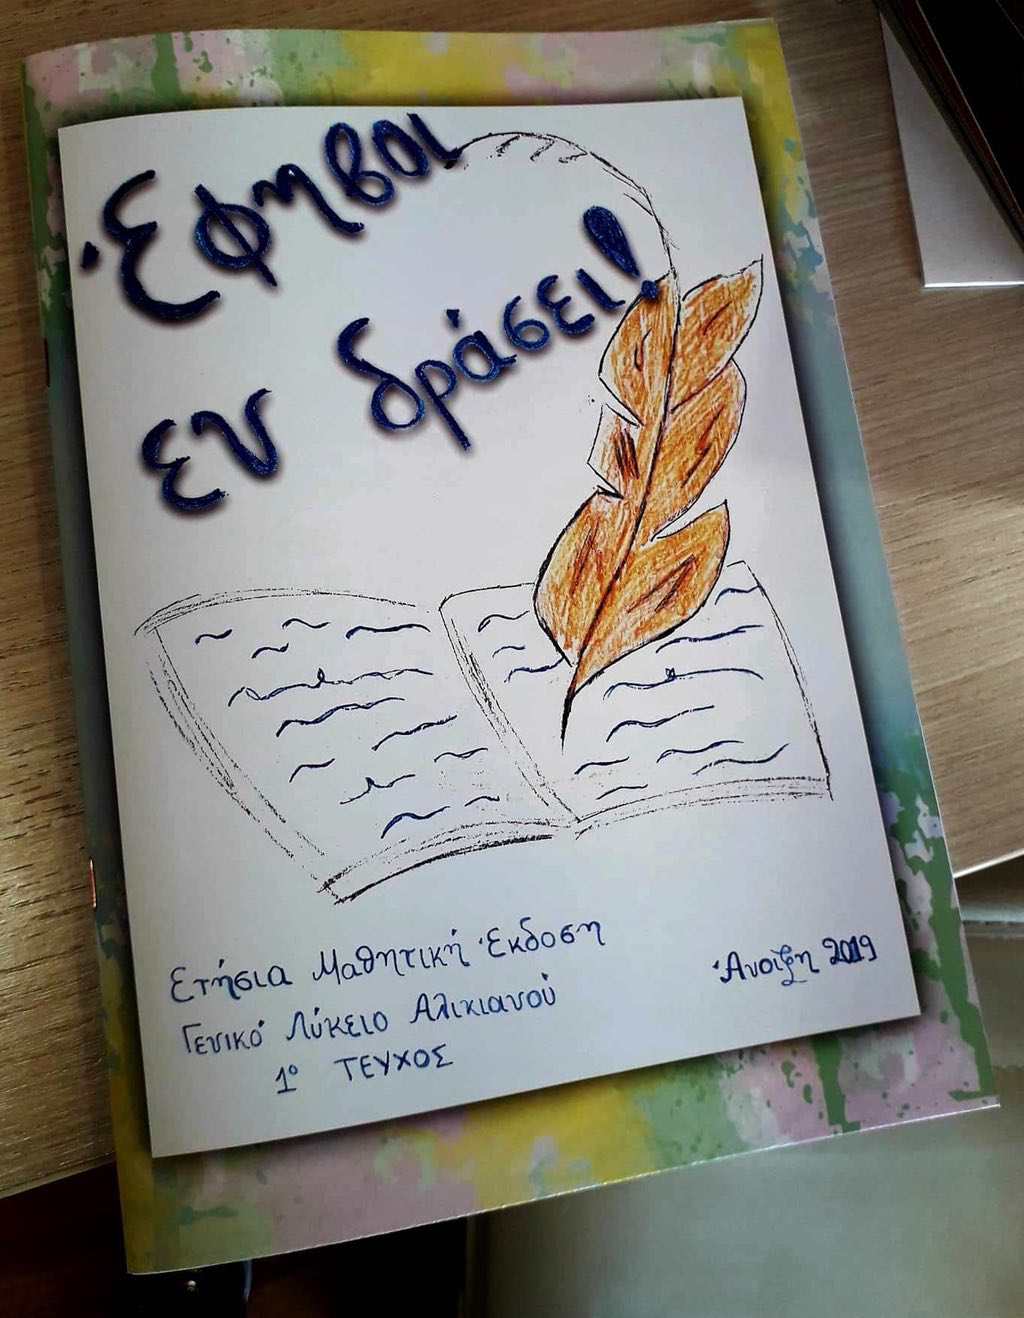 Έφηβοι
εν δράσει!
Ετήσια Μαθητική Έκδοση
Γενικό Λύκειο Αλικιανού
1º ΤΕΥΧΟΣ
Άνοιξη 2019